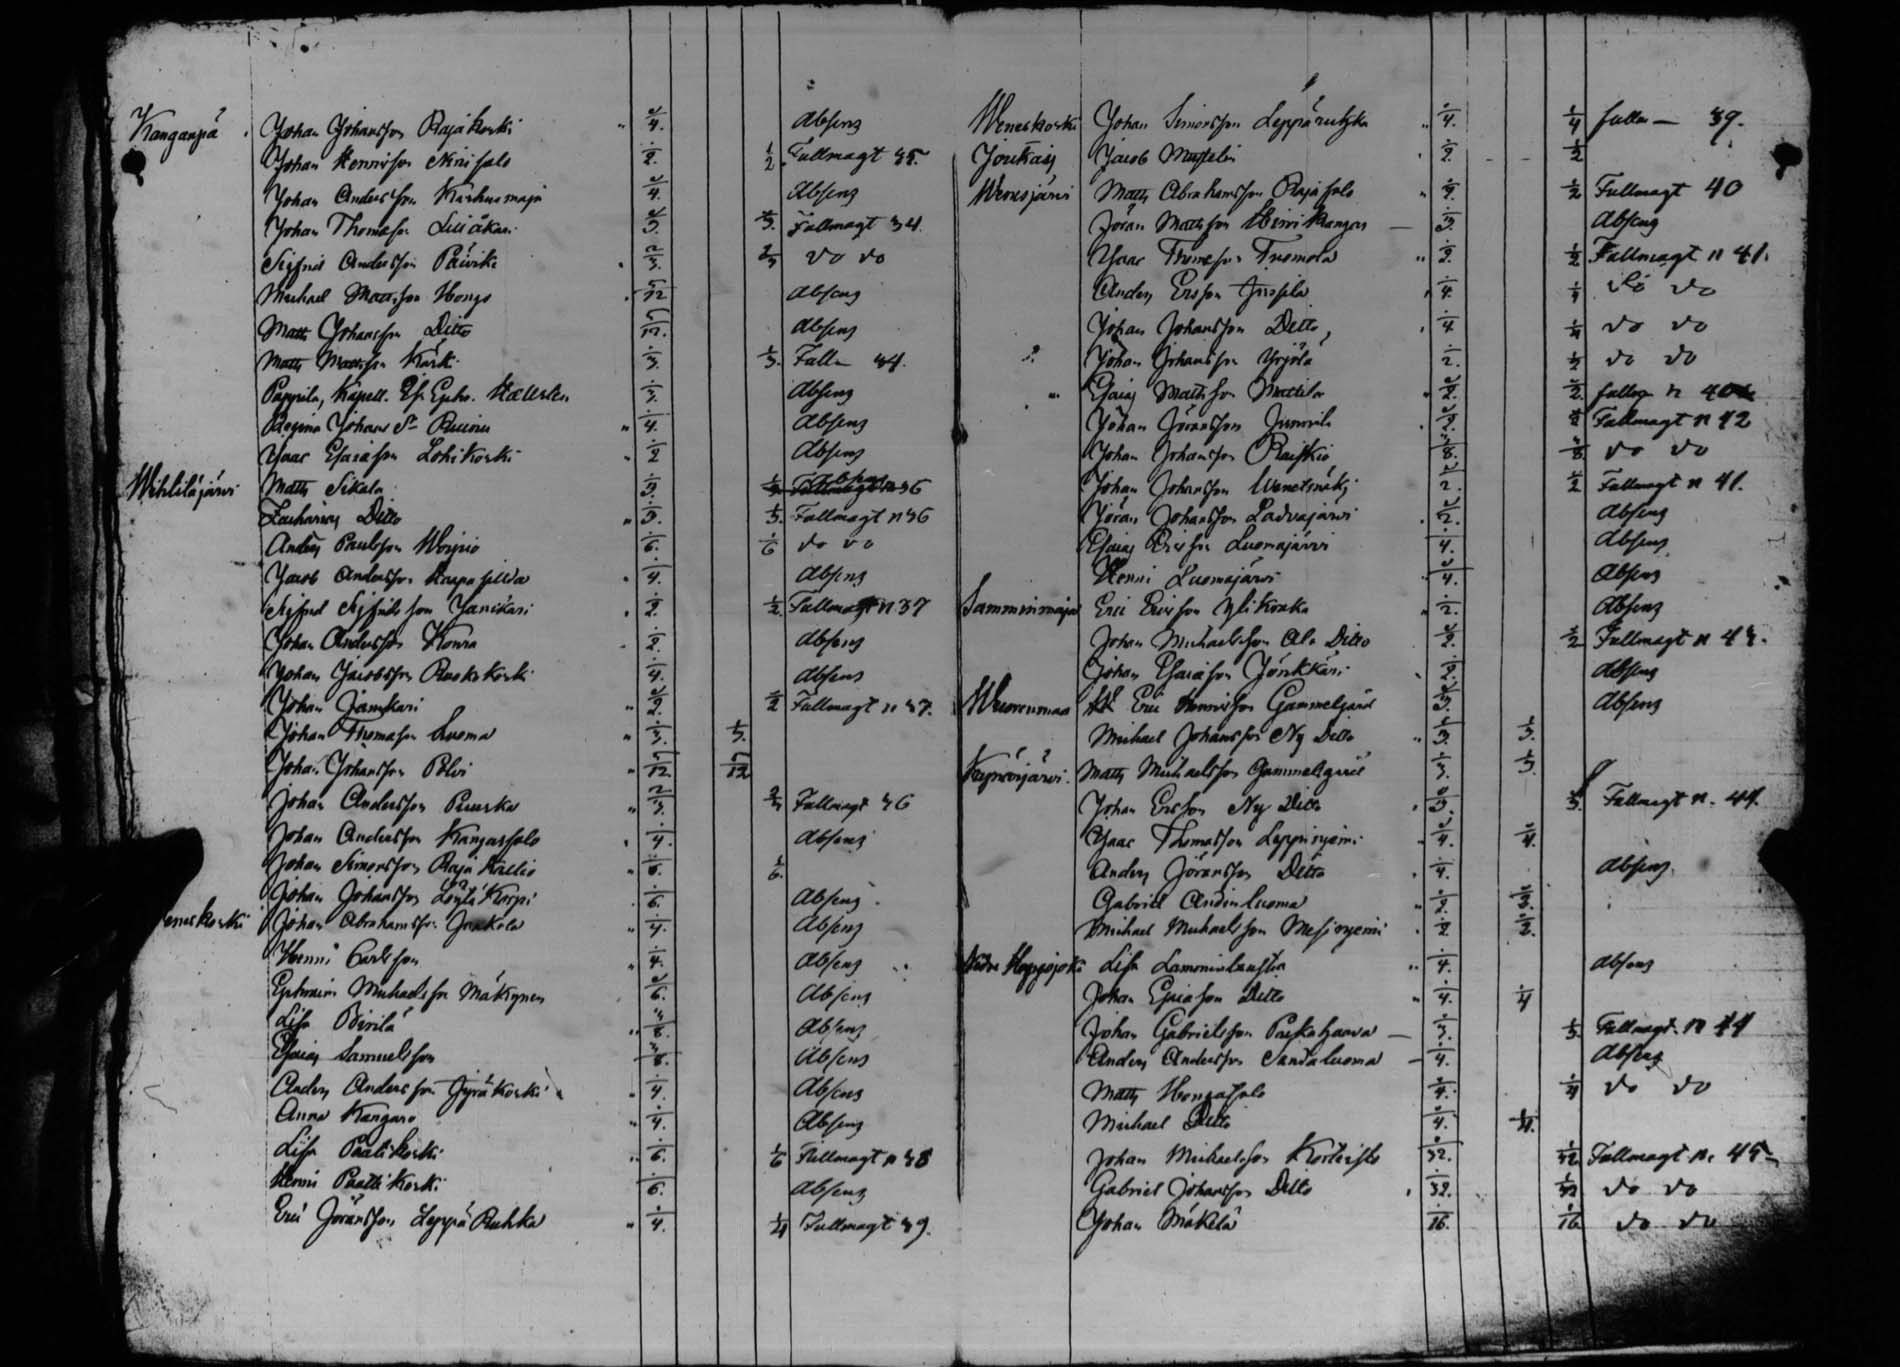 Kanganpä Johan Johansson Rajakoski 3/4. Absens
Johan Hennisson Niinisalo 1/2. 1/2. Fullmagt 35.
Johan Andersson Karhusmaja 3/4. Absens
Johan Thomasson Liliåkari 2/3. 2/3. Fullmagt 34.
Sigfred Andersson Päivike 2/3. 2/3 do do
Michael Mattsson Hongo 5/12 Absens
Matts Johansson Ditto 5/12. Absens
Matts Mattsson Kärki 1/3. 1/3. Fullm 34.
Pappila, Kapell. Ephr. 1/3. Absens
Regina Johans Dr 1/4. Absens
Isaac Esaiasson Lohikoski 1/2 Absens
Wihlilajärvi Matts Sikala 1/3.
Zacharias Ditto 1/3. 1/3. Fullmagt n 36
Anders Paulsson 1/6. 1/6 do do
Jacob Andersson Haapasilda 1/4. Absens
Sigfred Sigfridsson Janikari 1/2. 1/2. Fullmagt n 37
Johan Andersson Koura 1/2. Absens
Johan Jacobsson Ruokokoski 1/4. Absens
Johan Jämskari 1/2. 1/2 Fullmagt n 37.
Johan Thomasson Luoma 1/3. 1/3.
Johan Johansson Polvi 5/12 5/12
Johan Andersson Puuska 2/3. 2/3 Fullmagt 36
Johan Andersson Kangassalo 1/4. Absens
Johan Simonsson Raja Kallio 1/6. 1/6.
Johan Johansson Löylä Korpi 1/6. Absens
eneskoski Johan Abrahamsson Juakola 1/4. Absens
Henric Carlsson 1/4. Absens
Ephraim Michaelsson Mäkynen 1/6. Absens
Lisa Pirilä 3/8. Absens
Esaias Samuelsson 3/8. Absens
Anders Andersson Jyräkoski 1/4. Absens
Anna Kangaro 1/4. Absens
Lisa Paatikoski 1/6. 1/6 Fullmagt n 38
Henric Paattikoski 1/6. Absens
Eric Jöransson Leppä Ruhka 1/4. 1/4 Fullmagt 39.
Weneskoski Johan Simonsson Leppäruhka 1/4. 1/4 fullm — 39.
Joukais Jacob 1/2. 1/2
Wenesjärvi Matts Abrahamsson Rajasalo 1/2. 1/2 Fullmagt 40
Jöran Mattsson Hirvikangas 1/3. Absens
Isaac Thomasson Tuomola 1/2. 1/2 Fullmagt n 41.
Anders Ersson Jussila 1/4. 1/4 do do
Johan Johansson Ditto 1/4 1/4 do do
Johan Johansson Yrjölä 1/2. 1/2 do do
Esaias Mattsson Mattila 1/2. 1/2. fullm n 40
Johan Jöransson Junnila 1/2. 1/2 Fullmagt n 42
Johan Johansson Raiskio 3/8. 3/8 do do
Johan Johansson 1/2. 1/2 Fullmagt n 41.
Jöran Johansson Ladvajärvi 1/2. Absens
Esaias Ericsson Luomajärvi 1/4. Absens
Henric Luomajärvi 1/4. Absens
Samminmaja Eric Ericsson Ylikoski 1/2. Absens
Johan Michaelsson Ala Ditto 1/2. 1/2 Fullmagt n 43.
Johan Esaiasson Jänkkäri 1/2. Absens
Wuorenmaa Eric Henricsson Gammelgård 1/3. Absens
Michael Johansson Ny Ditto 1/3. 1/3.
Matts Michaelsson Gammelgård 1/3. 1/3.
Johan Ersson Ny Ditto 1/3. 1/3. Fullmagt n. 44.
Isaac Thomasson Leppiniemi 1/4. 1/4.
Anders Jöransson Ditto 1/4. Absens
Gabriel 1/2. 1/2.
Michael Michaelsson Mesiniemi 1/2. 1/2.
Lisa 1/4. Absens
Johan Esaiasson Ditto 1/4. 1/4
Johan Gabrielsson Paskahaara — 1/3. 1/3. Fullmagt n 44
Anders Andersson Sandaluoma — 1/4. Absens
Matts Hongasalo 1/4. 1/4 do do
Michael Ditto 1/4. 1/4.
Johan Michaelsson Kortesto 1/32. 1/32 Fullmagt n. 45
Gabriel Johansson Ditto 1/32. 1/32 do do
Johan Mäkelä 1/16. 1/16 do do